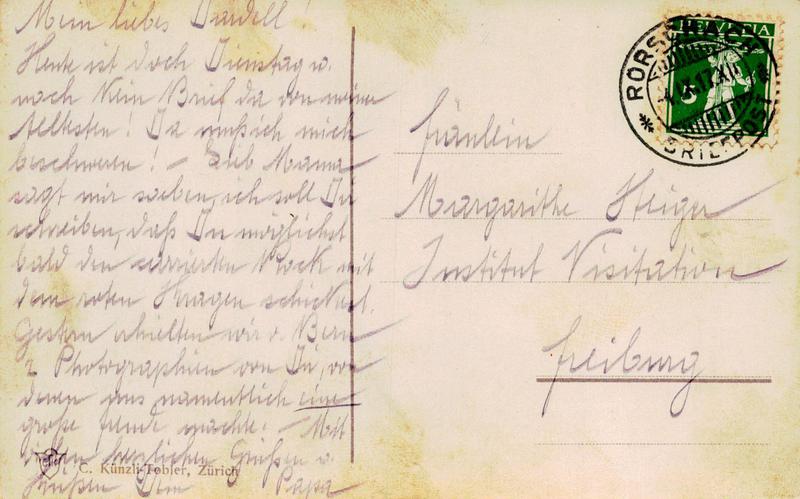 Mein liebes Dardell!
Heute ist doch Dienstag u.
noch kein Brief da von meiner
Aeltesten! Da muß ich mich
beschweren! - Lieb Mama
sagt mir soeben, ich soll Dir
schreiben, daß Du möglichst
bald den carrierten Rock mit
dem roten Kragen schickest.
Gestern erhielten wir v. Bern
2 Photographien von Dir, von
denen uns namentlich eine
große Freude machte. - Mit
vielen herzlichen Grüßen u.
Küssen Dein Papa
C. Künzli-Tobler, Zürich
HELVETIA
5
RORSCHACH
4.IX.17.XII
BRIEFPOST
Fräulein
Margarithe Steiger
Institut Visitation
Freiburg